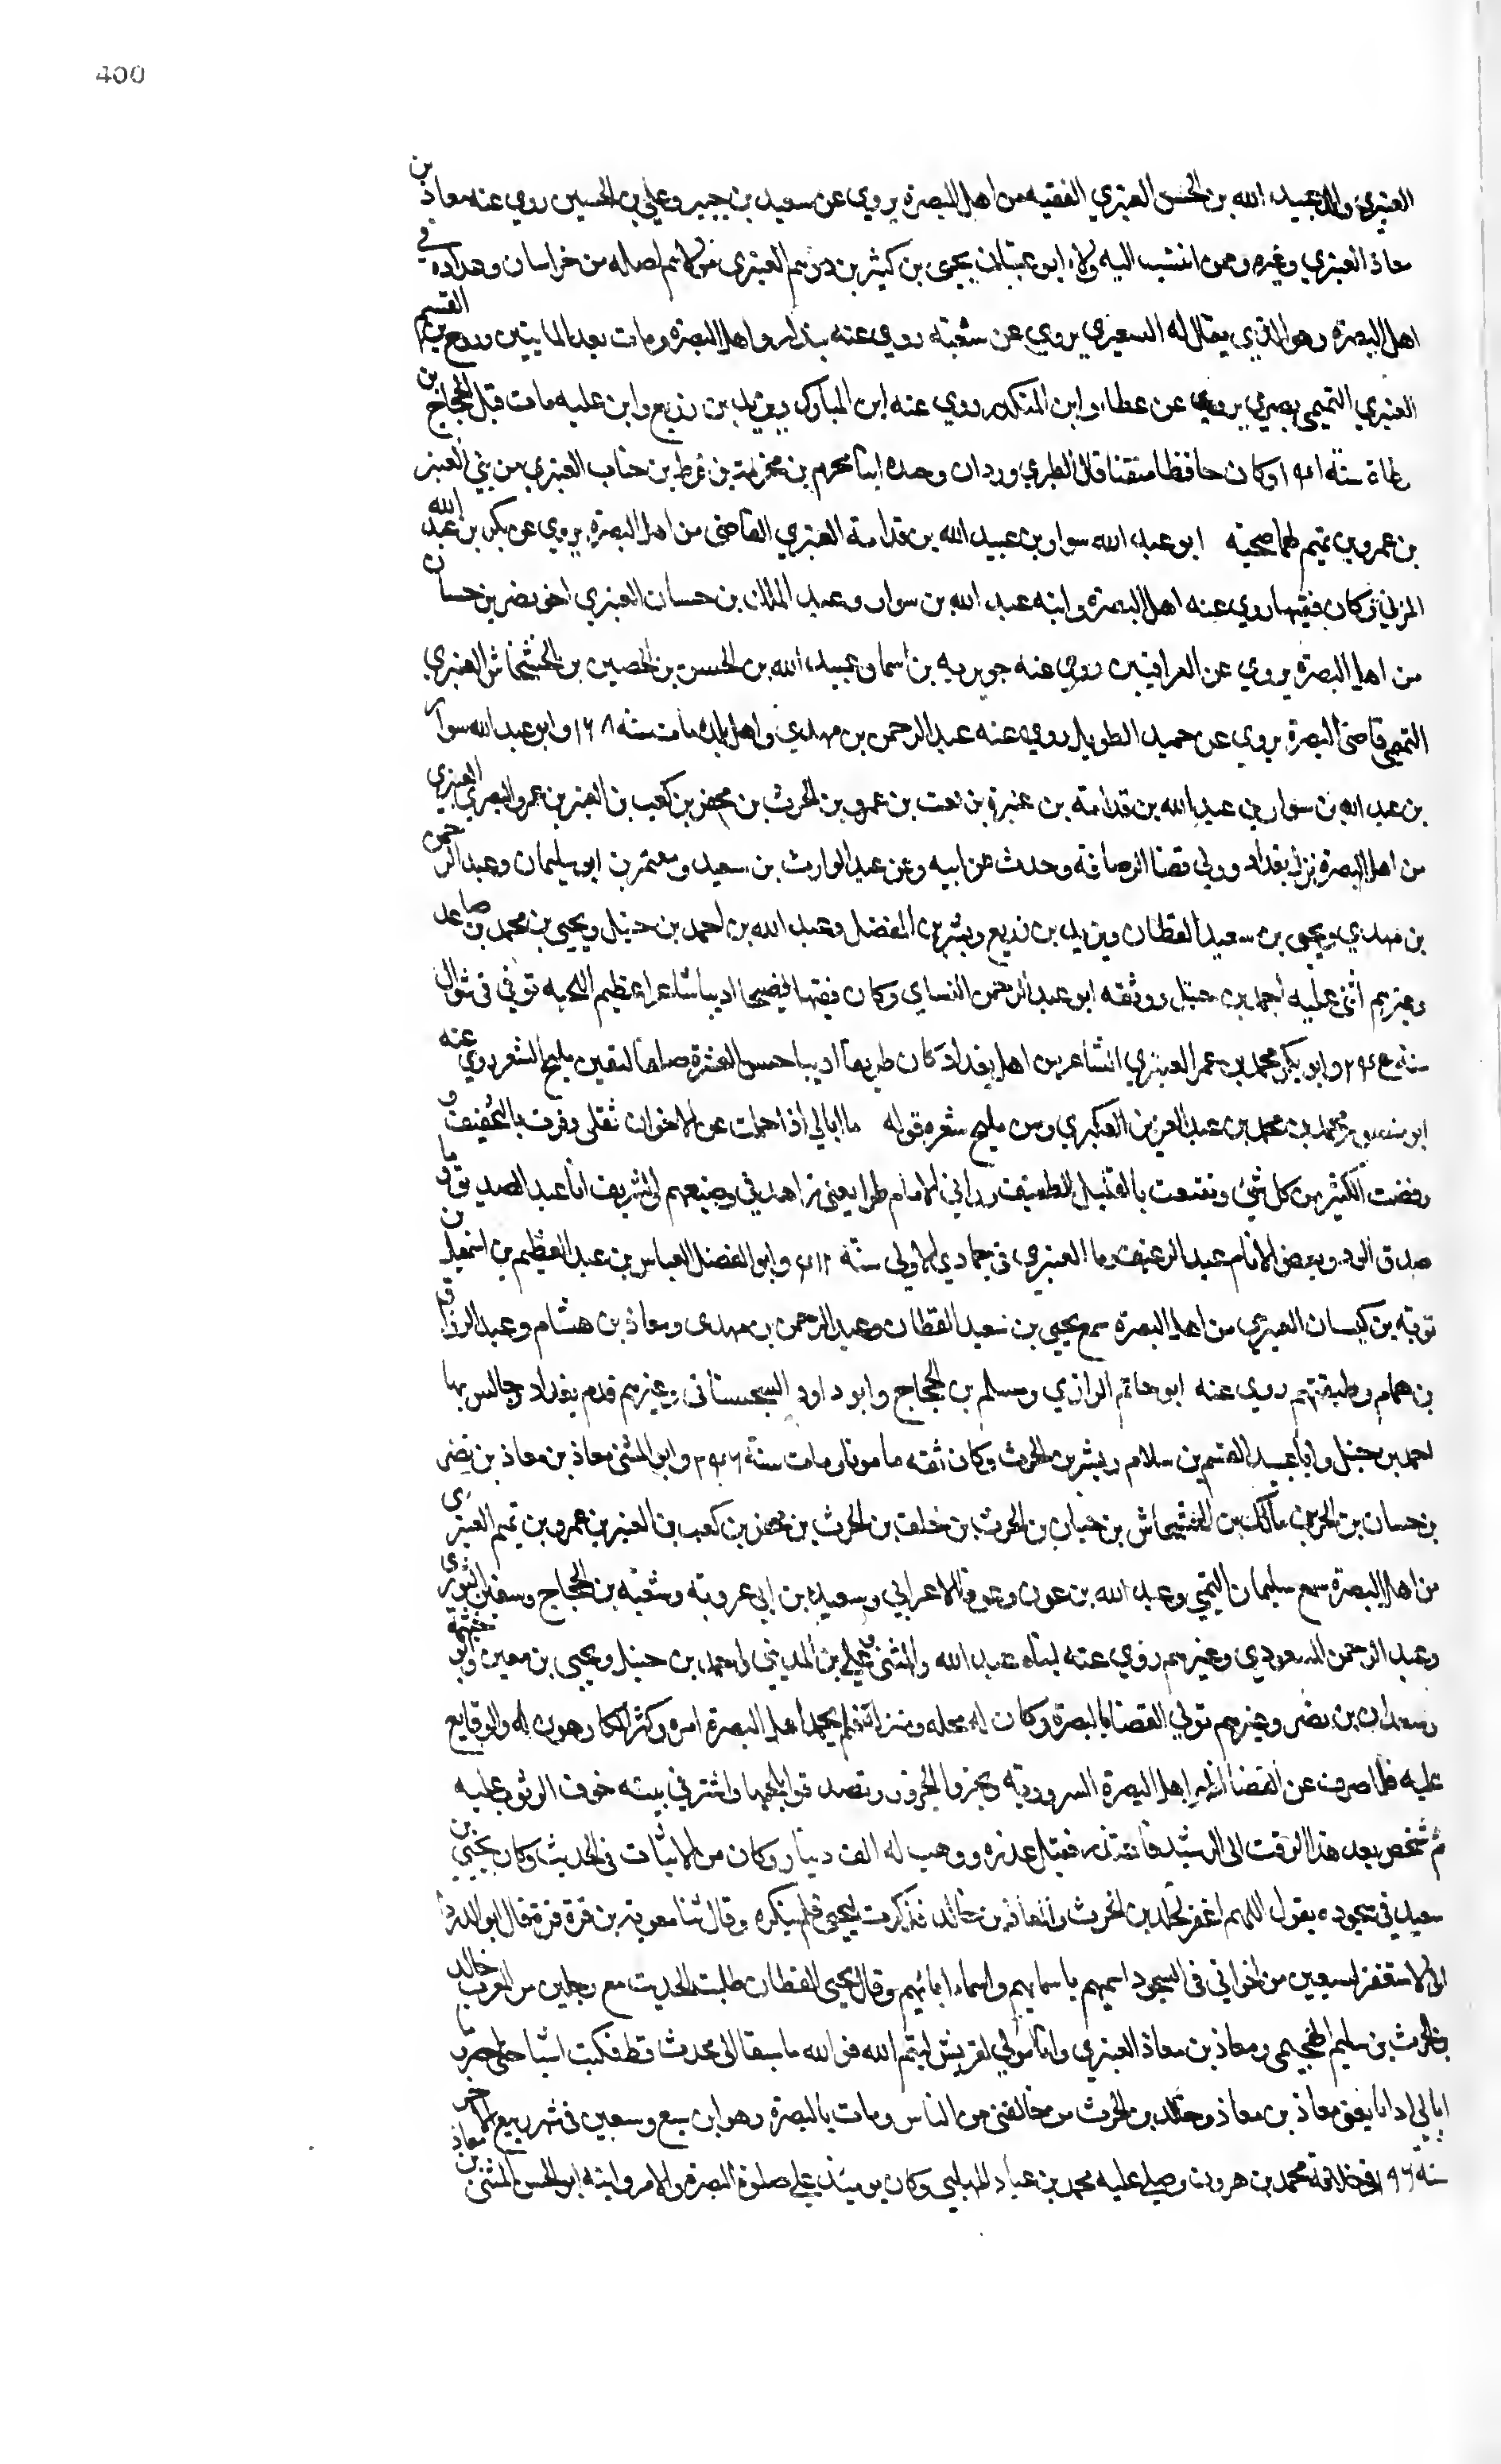 400
العنبري والد عبيد الله بن الحسن العنبري الفقيه من اهل البصرة يروي عن سعيد بن جبير وعلي بن الحسين روي عنه معاذ بن
معاذ العنبري وغيره وممن انتسب اليه ولاء ابو غسان يحيى بن كثير بن درهم العنبري مولاهم اصله من خراسان وعداده في
اهل البصرة وهو الذي يقال له السعيري يروي عن شعبة روي عنه بندار واهل البصرة ومات بعد المايتين وروح بن القسم
العنبري التميمي بصري يروي عن عطاء وابن المنكدر روي عنه ابن المبارك ويزيد بن زريع وابن علية مات قبل الحجاج بن
ارطاة سنة ١٤١ وكان حافظا متقنا قال الطبري وردان وحيده ابنا مخرم بن مخرمة بن قرط بن جناب العنبري من بني العنبر
بن عمرو بن تميم لهما صحبة ابو عبد الله سوار بن عبد الله بن قدامة العنبري القاضي من اهل البصرة يروي عن بكر بن عبد الله
المزني وكان فقيها روي عنه اهل البصرة وابنه عبد الله بن سوار وعبد الملك بن حسان العنبري اخو نضر بن حسان
من اهل البصرة يروي عن العراقيين روي عنه جويرية بن اسما وعبيد الله بن الحسن بن الحصين بن الخشخاش العنبري
التميمي قاضي البصرة يروي عن حميد الطويل روي عنه عبد الرحمن بن مهدي واهل بلده مات سنة ١٦٨ وابو عبد الله سوار
بن عبد الله بن سوار بن عبد الله بن قدامة بن عنزة بن نعت بن عمرو بن الحرث بن مجفر بن كعب بن العنبر بن عمرو البصري العنبري
من اهل البصرة نزل بغداد وولي قضا الرصافة وحدث عن ابيه وعن عبد الوارث بن سعيد ومعتمر بن ابو سليمان وعبد الرحمن
بن مهدي ويحيى بن سعيد القطان ويزيد بن زريع وبشر بن المفضل وعبد الله بن احمد بن حنبل ويحيى بن محمد بن صاعد
وغيرهم اثنى عليه احمد بن حنبل ووثقه ابو عبد الرحمن النساي وكان فقيها فصيحا اديبا شاعرا عظيم اللحية توفي في شوال
سنة ٢٤٥ وابو بكر محمد بن عمر العنبري الشاعر من اهل بغداد كان ظريفا اديبا حسن العشرة مليح الشعر روي عنه
ابو منصور محمد بن محمد بن عبد العزيز العكبري ومن مليح شعره قوله ما ابالي اذا حملت عن الاخوان ثقلي وفرت بالتخفيف و
رفضت الكثير من كل شي وتقنعت بالقليل الطفيف وراني الانام طرا بعيني زاهد في وضيعهم والشريف انا عبد الصديق ما
صدق الود وبعض الانام عبد الرغيف وما العنبري في جمادي الاولي سنة ٤١٢ وابو الفضل العباس بن عبد العظيم بن اسمعيل بن
توبة بن كيسان العنبري من اهل البصرة سمع يحيى بن سعيد القطان وعبد الرحمن بن مهدي ومعاذ بن هشام وعبد الرزاق
بن همام وطبقتهم روي عنه ابو حاتم الرازي ومسلم بن الحجاج وابو داود السجستاني وغيرهم قدم بغداد وجالس بها
احمد بن حنبل وابا عبيد القسم بن سلام وبشر بن الحرث وكان ثقه مامونا ومات سنة ٢٤٦ وابو المثنى معاذ بن معاذ بن نضر
بن حسان بن الحر بن مالك بن الخشخاش بن جناب بن الحرث بن خلف بن الحرث بن مجفر بن كعب بن العنبر بن عمرو بن تميم العنبري
من اهل البصرة سمع سليمان التيمي وعبد الله بن عون وعوفا الاعرابي وسعيد بن ابي عروبة وشعبة بن الحجاج وسفين الثوري
وعبد الرحمن المسعودي وغيرهم روي عنه ابناه عبيد الله والمثنى وعلي بن المديني واحمد بن حنبل ويحيى بن معين وابو خيثمة
وسعدان بن نضر وغيرهم تولي القضا بالبصرة وكان له محله ومنزلة فلم يحمد اهل البصرة امره وكثر الكارهون له والوقايع
عليه فلما صرف عن القضا اظهر اهل البصرة السرور به ونحروا الجزور وتصدقوا بلحمها واستتر في بيته خوف الوثوب عليه
ثم شخص بعد هذا الوقت الى الرشيد فاعتذر فقبل عذره ووهب له الف دينار وكان من الاثبات في الحديث وكان يحيى بن
سعيد في سجوده يقول اللهم اغفر لخالد بن الحرث ومعاذ بن معاذ فذكرت ليحيى فلم ينكره وقال ثنا معوية بن قرة قال قال ابو الدرداء
اني لاستغفر لسبعين من اخواني في السجود اسميهم باسمايهم واسماء ابايهم وقال يحيى القطان طلبت الحديث مع رجلين من العرب خالد
بن الحرث بن سليم الهجيمي ومعاذ بن معاذ العنبري وانا مولي لقريش لتيم الله فو الله ما سبقا الى محدث قط فكتبا شيا حتى احضر ما
ابالي اذا تابعني معاذ بن معاذ وخالد بن الحرث من خالفني من الناس ومات بالبصرة وهو ابن سبع وسبعين في شهر ربيع الاخر
سنة ١٩٦ في خلافة محمد بن هرون وصلي عليه محمد بن عباد المهلبي وكان يومئذ علي صلوة البصرة والامر وابنه ابو الحسن المثنى بن معاذ